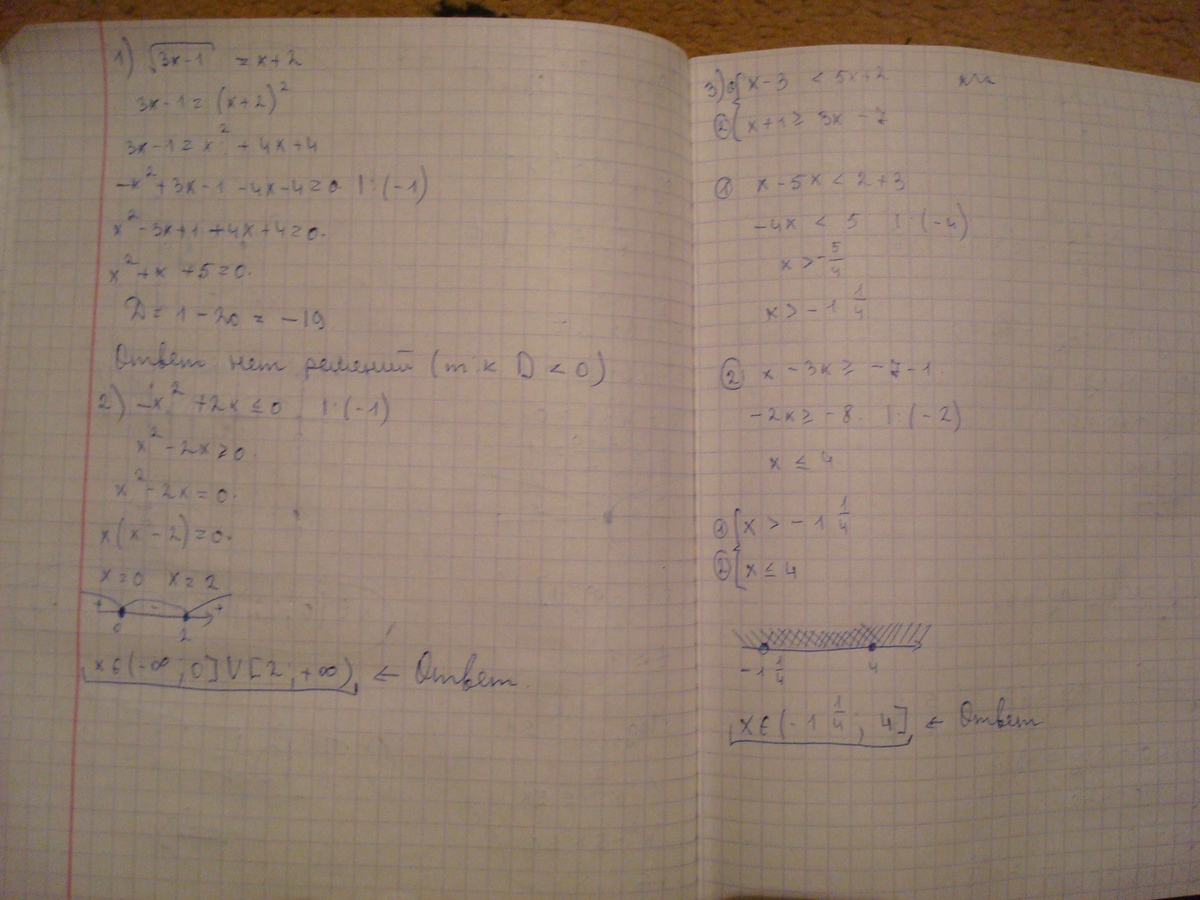 1) √3x-1 = x+2
3x-1 = (x+2)²
3x-1 = x² + 4x+4
-x²+3x-1 -4x-4=0 |:(-1)
x²-3x+1+4x+4=0.
x²+x+5=0.
D = 1-20 = -19
Ответ нет решений (т к D < 0)
2) -x² +2x ≤ 0 |:(-1)
x²-2x≥0.
x²-2x=0.
x(x-2)=0.
x=0 x=2
+ - +
0 2
x∈(-∞; 0] U [2; +∞) ← Ответ.
3) ① { x-3 < 5x+2
② { x+1 ≥ 3x -7
① x-5x < 2+3
-4x < 5 |:(-4)
x > -5/4
x > -1 1/4
② x -3x ≥ -7-1.
-2x ≥ -8. |:(-2)
x ≤ 4
① { x > -1 1/4
② { x ≤ 4
-1 1/4 4
x∈(-1 1/4; 4] ← Ответ